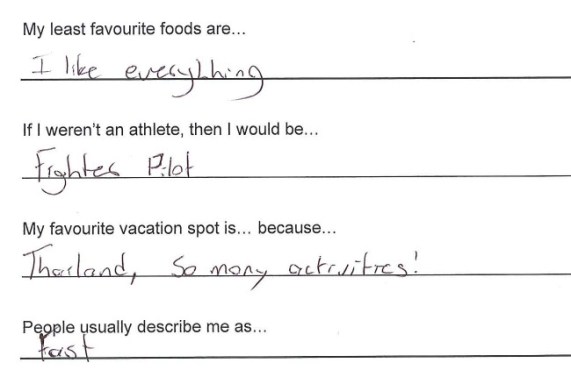 My least favourite foods are...
I like everything
If I weren't an athlete, then I would be...
Fighter Pilot
My favourite vacation spot is... because...
Thailand, So many activities!
People usually describe me as...
Fast